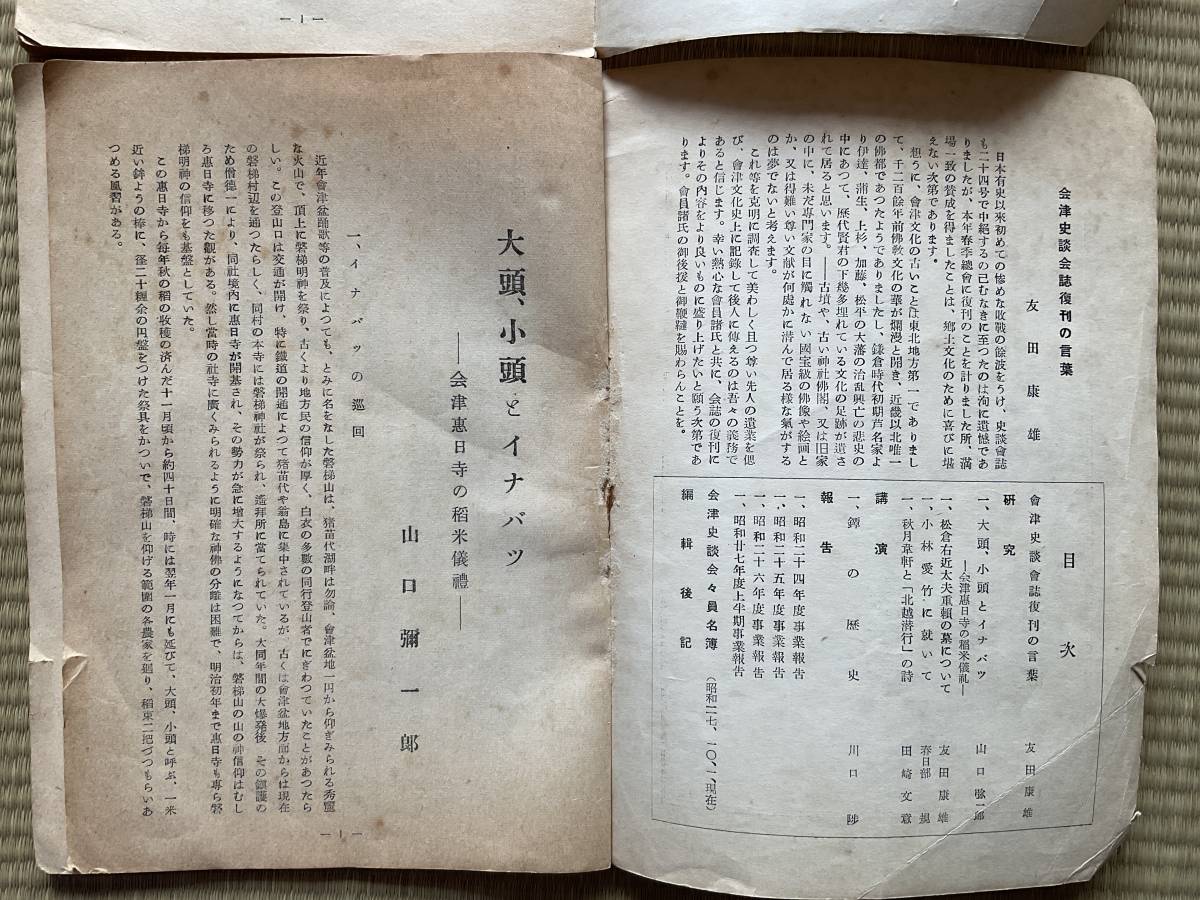 会津史談会誌復刊の言葉
友田康雄
日本有史以來初めての惨めな敗戰の餘波をうけ、史談會誌
も二十四号で中絶するの己むなきに至つたのは洵に遺憾であ
りましたが、本年春季總會に復刊のことを計りました所、満
場一致の賛成を得ましたことは、郷土文化のために喜びに堪
えない次第であります。
想うに、會津文化の古いことは東北地方第一でありまし
て、千二百餘年前佛教文化の華が爛漫と開き、近畿以北唯一
の佛都であつたようでありましたし、鎌倉時代初期芦名家よ
り伊達、蒲生、上杉、加藤、松平の大藩の治乱興亡の悲史の
中にあつて、歴代賢君の下幾多埋れている文化の足跡が遺さ
れて居ると思います。——古墳や、古い神社佛閣、又は旧家
の中に、未だ專門家の目に觸れない國宝級の佛像や絵画と
か、又は得難い尊い文献が何處かに潜んで居る様な氣がする
のは夢でないと考えます。
これ等を克明に調査して美わしく且つ尊い先人の遺業を偲
び、會津文化史上に記録して後人に傳えるのは吾々の義務で
あると信じます。幸い熱心な會員諸氏と共に、会誌の復刊に
よりその内容をより良いものに盛り上げたいと願う次第であ
ります。會員諸氏の御後援と御鞭韃を賜わらんことを。
目次
會津史談會誌復刊の言葉 友田康雄
研究
一、大頭、小頭とイナバツ 山口弥一郎
——会津惠日寺の稻米儀礼——
一、松倉右近太夫重頼の墓について 友田康雄
一、小林愛竹に就いて 春日部規
一、秋月韋軒と「北越潜行」の詩 田崎文意
講演
一、鐔の歴史 川口陟
報告
一、昭和二十四年度事業報告
一、昭和二十五年度事業報告
一、昭和二十六年度事業報告
一、昭和廿七年度上半期事業報告
会津史談会々員名簿 (昭和二七、一〇、一、現在)
編輯後記
大頭、小頭とイナバツ
——会津惠日寺の稻米儀禮——
山口彌一郎
一、イナバツの巡回
近年會津盆踊歌等の普及によつても、とみに名をなした磐梯山は、猪苗代湖畔は勿論、會津盆地一円から仰ぎみられる秀靈
な火山で、頂上に磐梯明神を祭り、古くより地方民の信仰が厚く、白衣の多数の同行登山者でにぎわつていたことがあつたら
しい。この登山口は交通が開け、特に鐵道の開通によつて猪苗代や翁島に集中されているが、古くは會津盆地方面からは現在
の磐梯村辺を通つたらしく、同村の本寺には磐梯神社が祭られ、遙拜所に當てられていた。大同年間の大爆発後 その鎭護の
ため僧德一により、同社境内に惠日寺が開基され、その勢力が急に增大するようになつてからは、磐梯山の山の神信仰はむし
ろ惠日寺に移つた觀がある。然し當時の社寺に廣くみられるように明確な神佛の分離は困難で、明治初年まで惠日寺も専ら磐
梯明神の信仰をも基盤としていた。
この惠日寺から毎年秋の稻の收穫の済んだ十一月頃から約四十日間、時には翌年一月にも延びて、大頭、小頭と呼ぶ、一米
近い鉾ようの棒に、徑二十糎余の円盤をつけた祭具をかついで、磐梯山を仰げる範圍の各農家を廻り、稻束二把づつもらいあ
つめる風習がある。
—1—
—1—